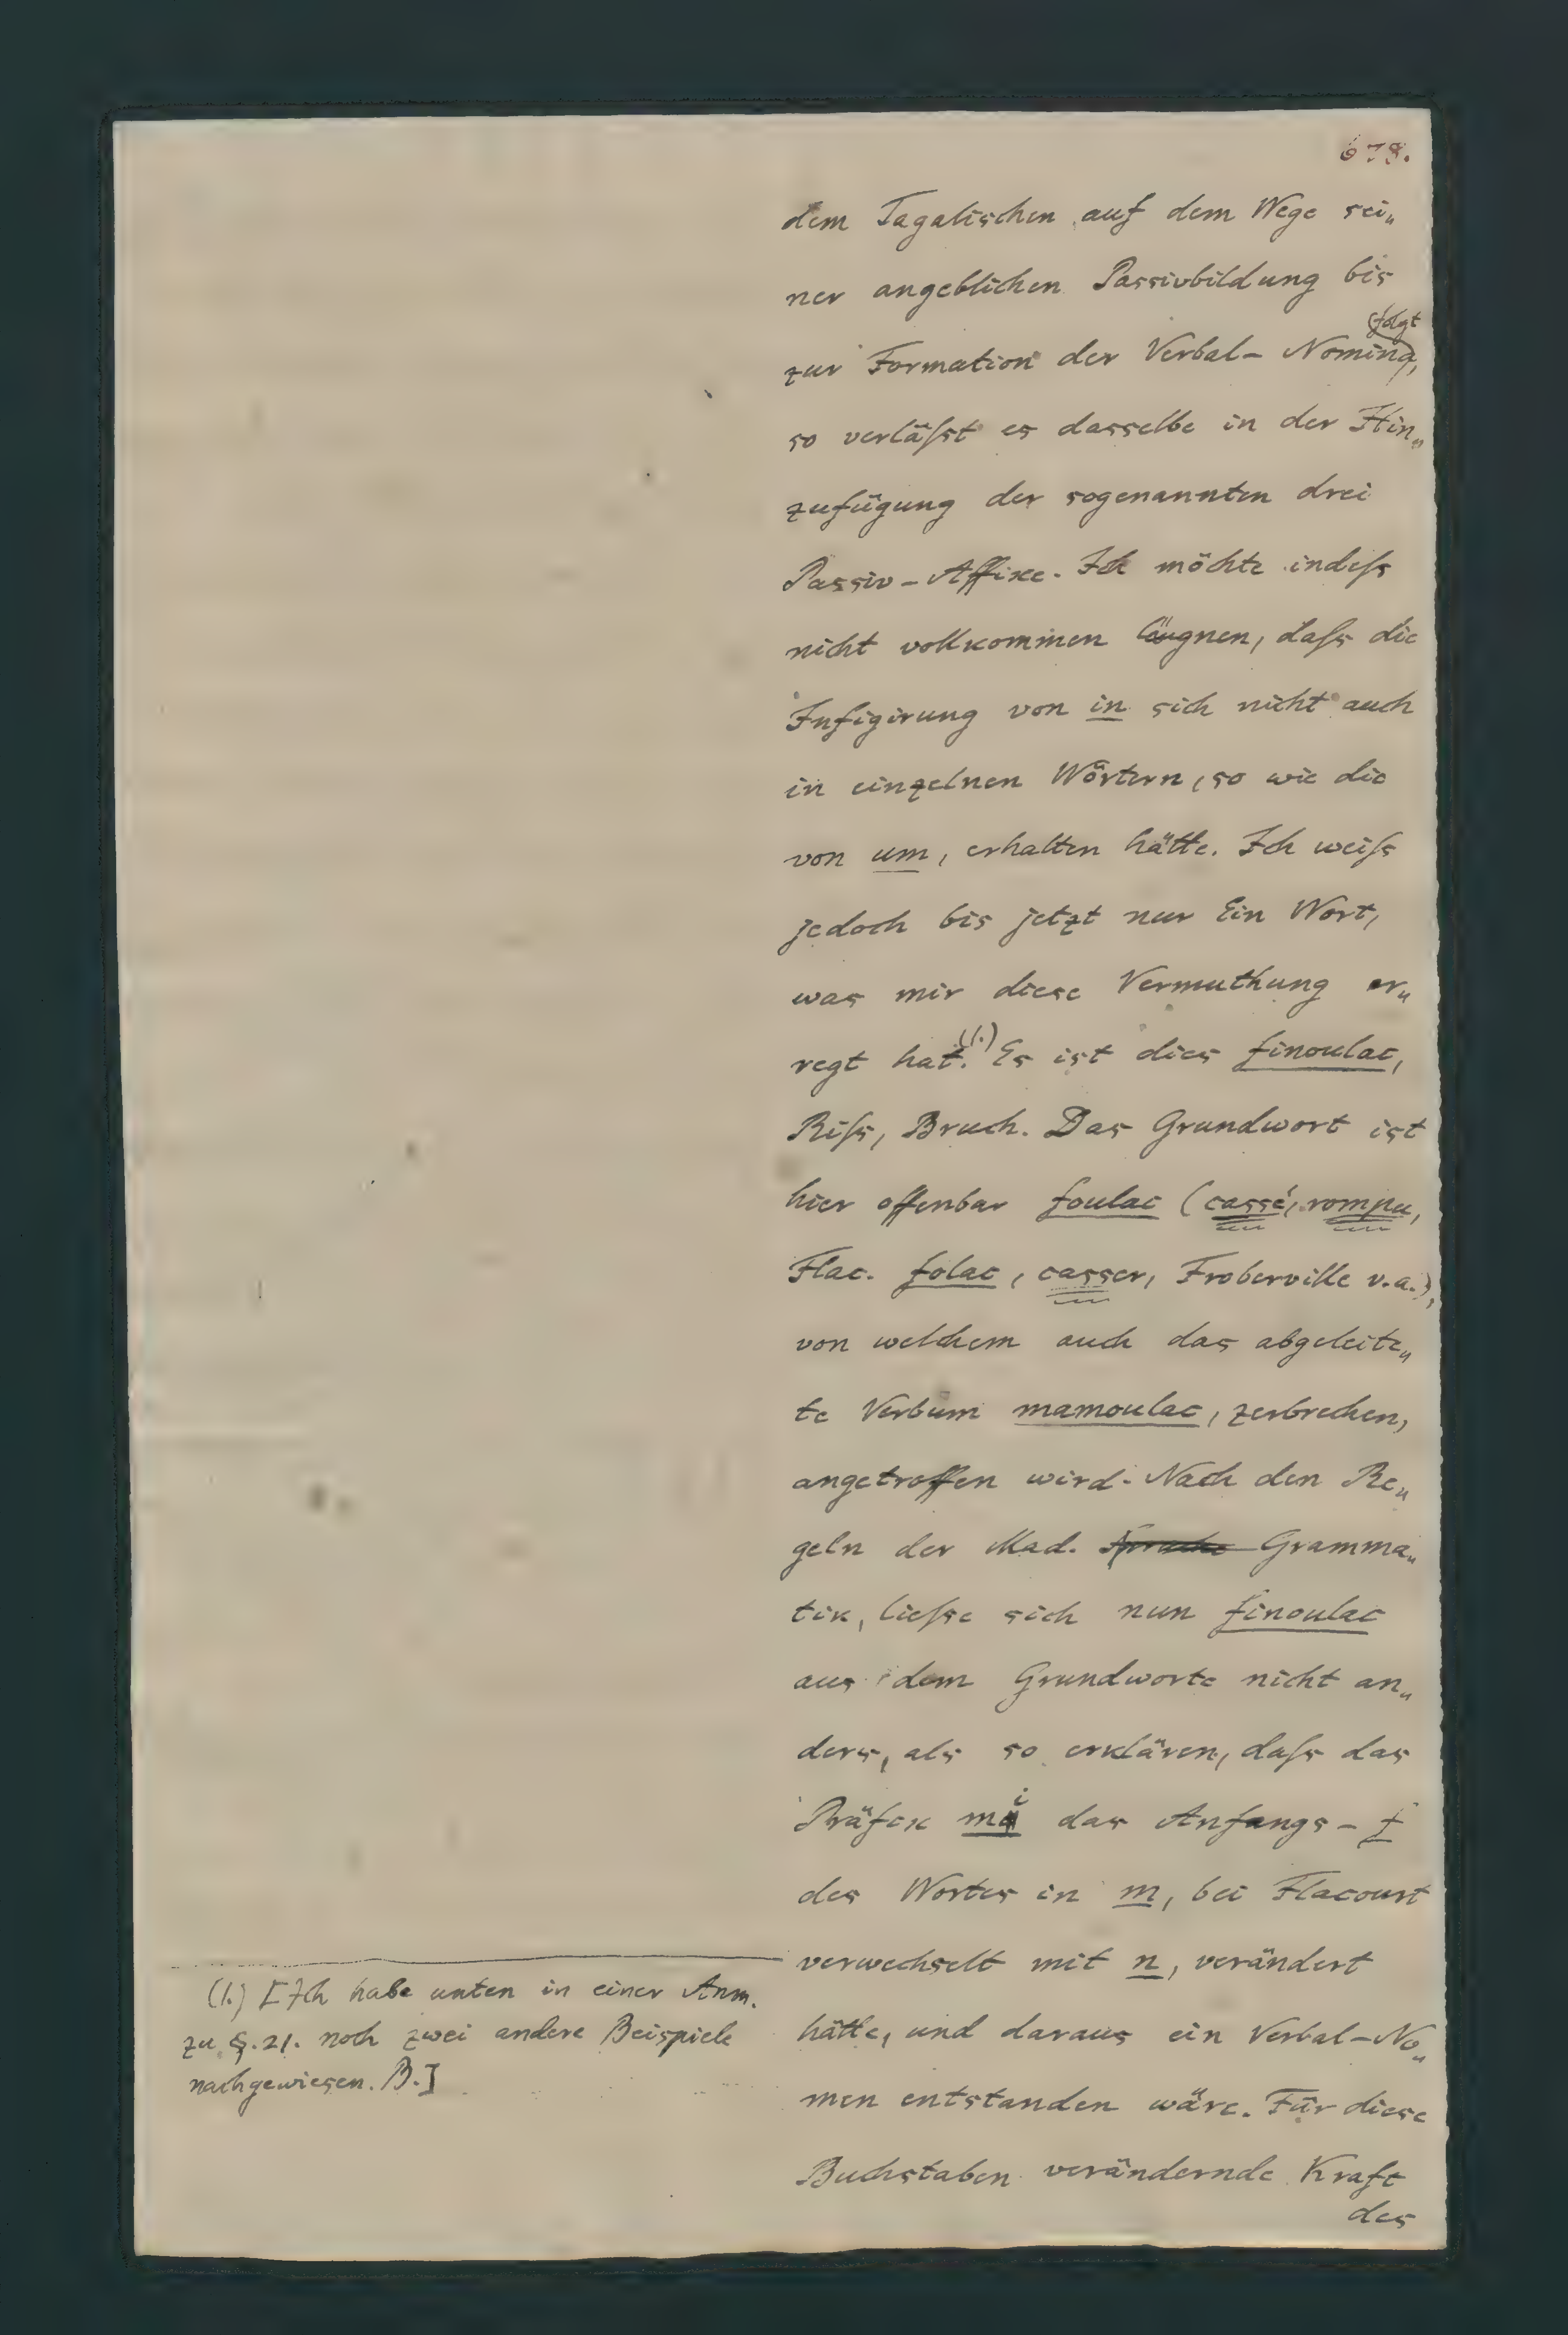 678.
dem Tagalischen auf dem Wege sei„
ner angeblichen Passivbildung bis
folgt
zur Formation der Verbal-Nomina,
so verläſst es dasselbe in der Hin„
zufügung der sogenannten drei
Passiv-Affixe. Ich möchte indeſs
nicht vollkommen läugnen, daſs die
Infigirung von in sich nicht auch
in einzelnen Wörtern, so wie die
von um, erhalten hätte. Ich weiſs
jedoch bis jetzt nur Ein Wort,
was mir diese Vermuthung er„
regt hat.(1.) Es ist dies finoulac,
Riſs, Bruch. Das Grundwort ist
hier offenbar foulac (cassé, rompu,
Flac. folac, casser, Froberville v.a.),
von welchem auch das abgeleite„
te Verbum mamoulac, zerbrechen,
angetroffen wird. Nach den Re„
geln der Mad. Sprache Gramma„
tik, lieſse sich nun finoulac
aus dem Grundworte nicht an„
ders, als so erklären, daſs das
Präfix mi das Anfangs-f
des Wortes in m, bei Flacourt
verwechselt mit n, verändert
hätte, und daraus ein Verbal-No„
men entstanden wäre. Für diese
Buchstaben verändernde Kraft
des
(1.) [Ich habe unten in einer Anm.
zu §.21. noch zwei andere Beispiele
nachgewiesen. B.]